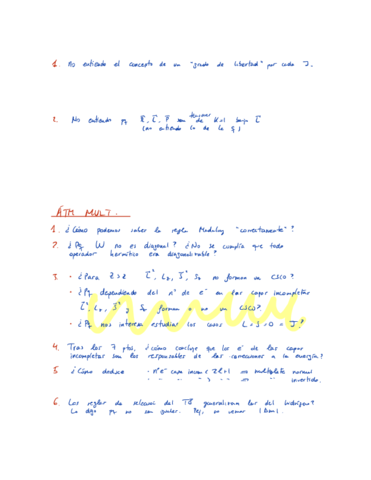 1. No entiendo el concepto de un "grado de libertad" por cada J.
2. No entiendo pq R, L, P son tensor de K=1 bajo L
(no entiendo lo de la q)
ÁTM MULT.
1. ¿Cómo podemos saber la regla Madelung "correctamente"?
2. ¿Pq W no es diagonal? ¿No se cumplía que todo
operador hermítico era diagonalizable?
3. • ¿Para Z>2 L², L_z, S², S_z no forman un CSCO?
• ¿Pq dependiendo del nº de e⁻ en las capas incompletas
L², L_z, S² y S_z forman o no un CSCO?
• ¿Pq nos interesa estudiar los casos L=S=0 = J?
4. Tras las 7 pts, ¿cómo concluye que los e⁻ de las capas
incompletas son los responsables de las correcciones a la energía?
5. ¿Cómo deduce • nº e⁻ capa incom < 2l+1 ⇒ multiplete normal
invertido.
6. Las reglas de selección del Tª generalizan las del hidrógeno?
Lo digo pq no son